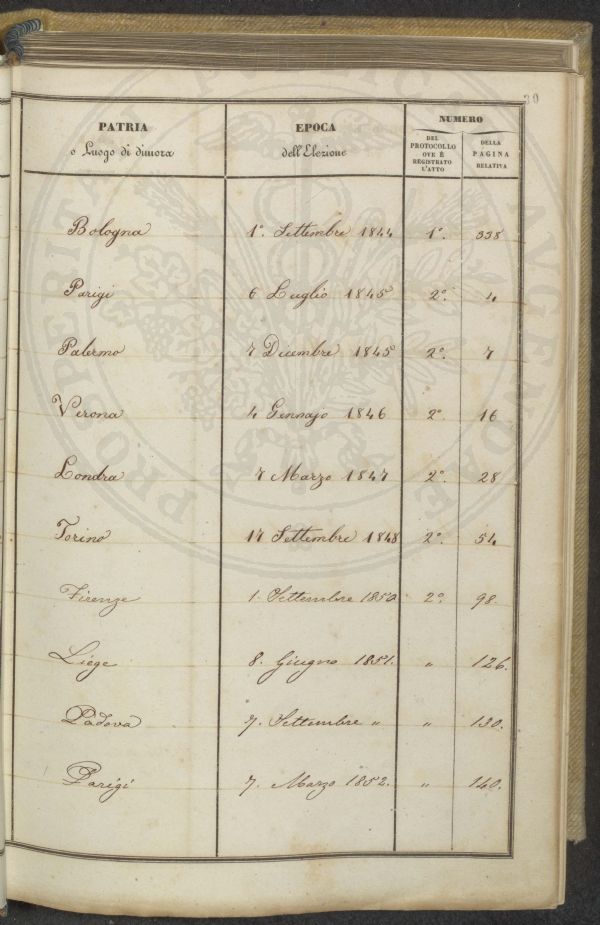 30
PATRIA
o Luogo di dimora
EPOCA
dell'Elezione
NUMERO
DEL PROTOCOLLO OVE È REGISTRATO L'ATTO
DELLA PAGINA RELATIVA
Bologna 1º. Settembre 1844 1º. 338
Parigi 6 Luglio 1845 2º. 4
Palermo 7 Dicembre 1845 2º. 7
Verona 4 Gennajo 1846 2º 16
Londra 7 Marzo 1847 2º. 28
Torino 17 Settembre 1848 2º. 54
Firenze 1. Settembre 1850 2º. 98.
Liége 8. Giugno 1851. " 126.
Padova 7. Settembre " " 130.
Parigi 7. Marzo 1852. " 140.
PROSPERITATI PUBLICAE AUGENDAE